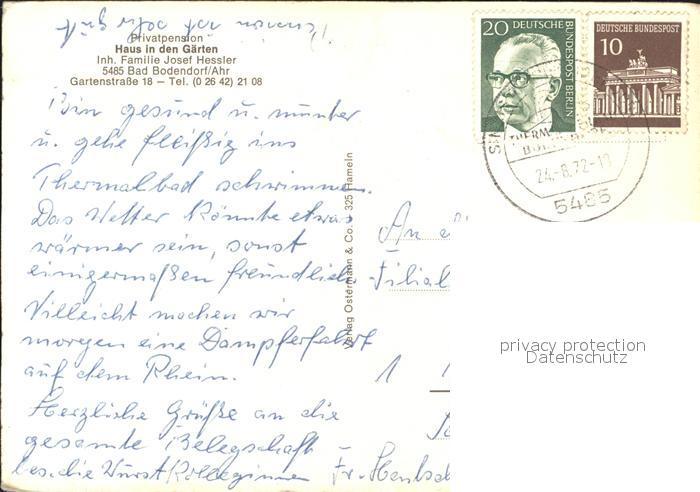 Privatpension
Haus in den Gärten
Inh. Familie Josef Hessler
5485 Bad Bodendorf/Ahr
Gartenstraße 18 – Tel. (0 26 42) 21 08
Bin gesund u. munter
u. gehe fleißig ins
Thermalbad schwimmen.
Das Wetter könnte etwas
wärmer sein, sonst
einigermaßen freundlich.
Villeicht machen wir
morgen eine Dampferfahrt
auf dem Rhein.
Herzliche Grüße an die
gesamte Belegschaft
bes. die Wurst Kolleginnen
Verlag Ostermann & Co. 325 Hameln
20 DEUTSCHE
BUNDESPOST BERLIN
DEUTSCHE BUNDESPOST
10
24.-8.72-1
5485
An
Filial
1
privacy protection
Datenschutz